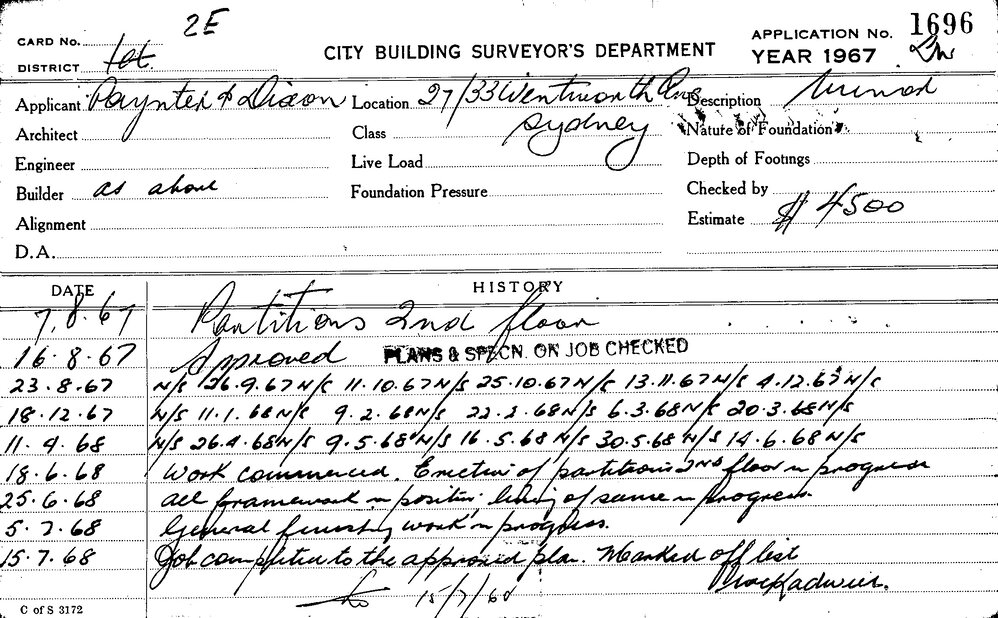 2E
CARD No.
1st
DISTRICT
CITY BUILDING SURVEYOR'S DEPARTMENT
APPLICATION No. 1696
YEAR 1967
Applicant Paynter & Dixon Location 27/33 Wentworth Ave Description Minor
Sydney
Architect Class Nature of Foundation
Engineer Live Load Depth of Footings
Builder as above Foundation Pressure Checked by
Alignment Estimate $4500
D.A.
DATE HISTORY
7.8.67 Partitions 2nd floor
16.8.67 Approved PLANS & SPECN. ON JOB CHECKED
23.8.67 N/S 26.9.67 N/S 11.10.67 N/S 25.10.67 N/S 13.11.67 N/S 4.12.67 N/S
18.12.67 N/S 11.1.68 N/S 9.2.68 N/S 22.2.68 N/S 6.3.68 N/S 20.3.68 N/S
11.4.68 N/S 26.4.68 N/S 9.5.68 N/S 16.5.68 N/S 30.5.68 N/S 14.6.68 N/S
18.6.68 Work commenced. Erection of partitions 2ND floor in progress
25.6.68 all framework in position; lining of same in progress.
5.7.68 General finishing work in progress.
15.7.68 Job completed to the approved plan. Marked off list
15/7/68
C of S 3172